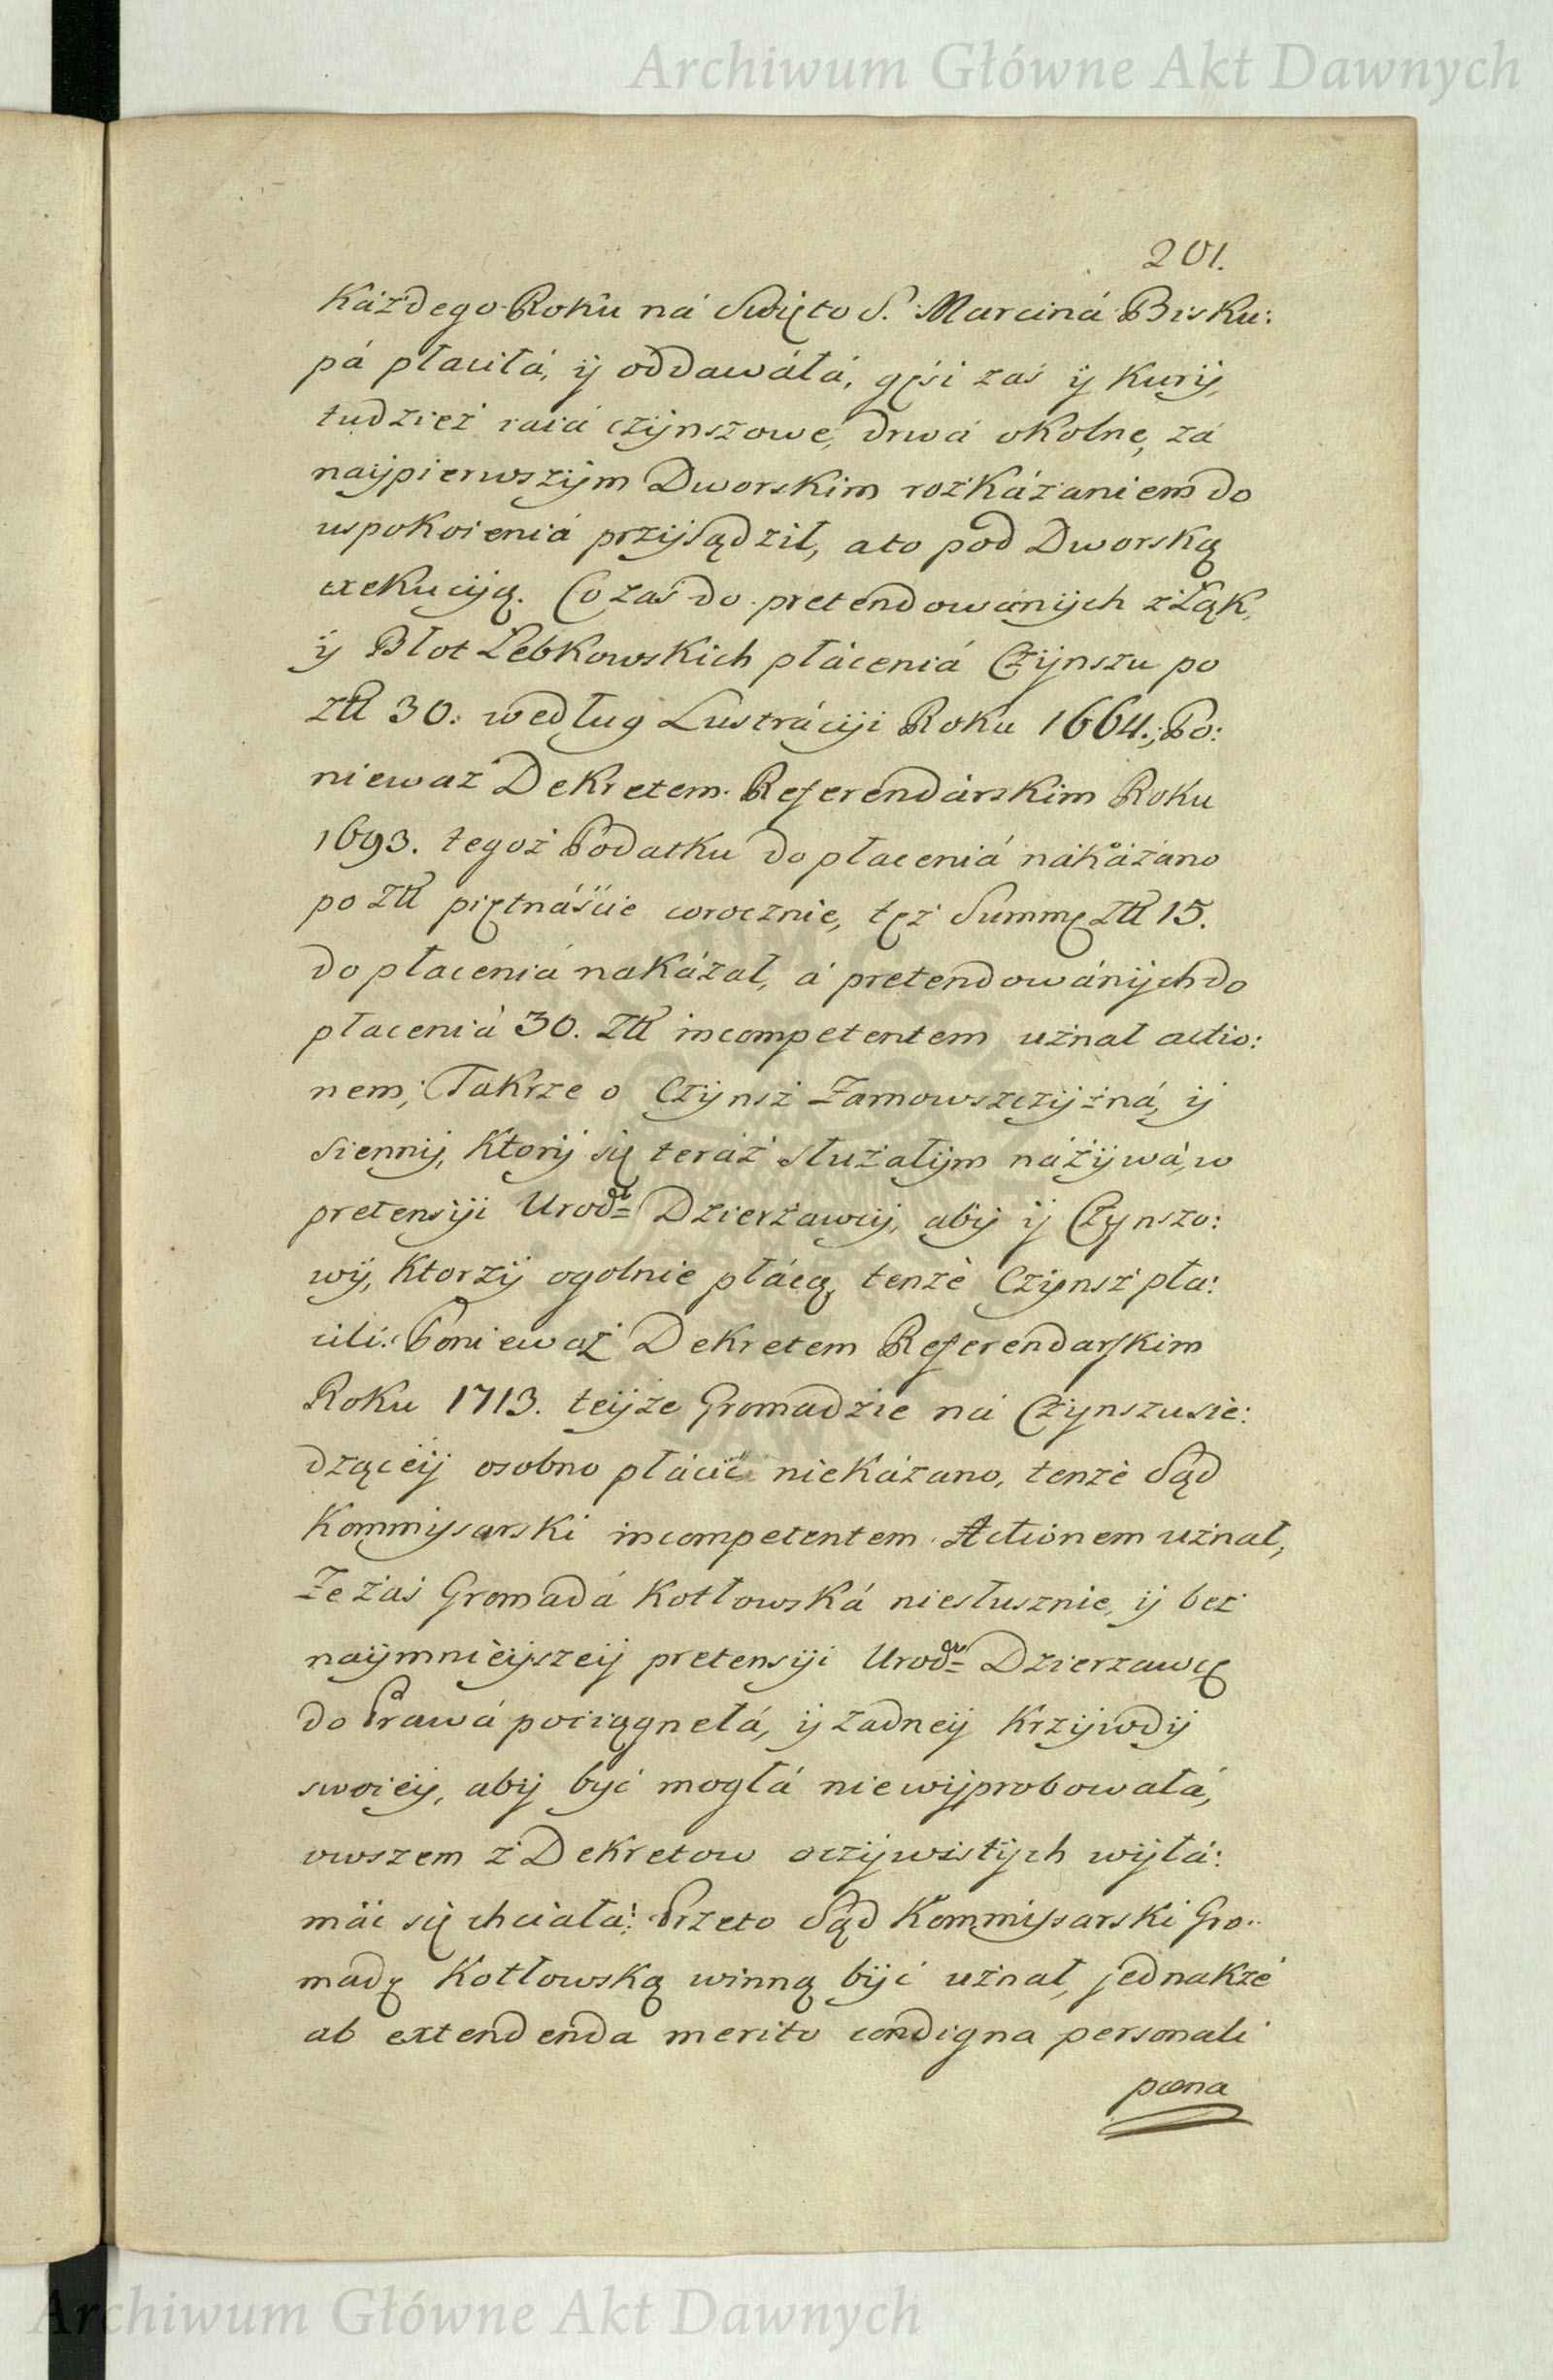 Archiwum Główne Akt Dawnych
201.
Każdego Roku ná Swięto S. Marciná Bisku:
pá płaciłá, ÿ oddawáłá, gęśi zaś ÿ Kurÿ,
tudzież iaiá czÿnszowe, drwá okolne, zá
naÿpierwszÿm Dworskim rozkázaniem do
uspokoieniá przÿsądził, ato pod Dworską
exekucÿą. Co zaś do pretendowánÿch z Łąk,
ÿ Błot Lebkowskich płáceniá Czÿnszu po
Złł 30. według Lustrácÿi Roku 1664.; Po:
nieważ Dekretem Referendárskim Roku
1693. tegoż Podatku do płaceniá nákázano
po Złł piętnáśćie corocznie, tęż Summę Złł 15.
do płaceniá nakázał, á pretendowánÿch do
płaceniá 30. Złł incompetentem uznał actio:
nem; Takrze o Czÿnsz Zarnowszczÿzná, ÿ
Siennÿ, Ktorÿ się teráz Służałÿm názÿwá, w
pretensÿi Urodº= Dzierżawcÿ, abÿ ÿ Czÿnszo:
wÿ, Ktorzÿ ogolnie płácą, tenże Czÿnsz pła:
cili: Ponieważ Dekretem Referendarskim
Roku 1713. teÿże Gromadzie ná Czÿnszu sie:
dząceÿ osobno płácić niekázano, tenże Sąd
Kommissarski incompetentem Actionem uznał,
Że zaś Gromadá Kotłowská niesłusznie, ÿ bez
naÿmnieÿszeÿ pretensÿi Urodº= Dzierzawcę
do Prawá pociągnełá, ÿ zadneÿ Krzÿwdÿ
swoieÿ, abÿ bÿć mogłá niewÿprobowałá,
owszem z Dekretow oczÿwistÿch wÿłá:
mác się chciała: Przeto Sąd Kommissarski Gro:
madę Kotłowską winną bÿć uznał, jednakże
ab extendenda merito condigna personali
pœna
Archiwum Główne Akt Dawnych